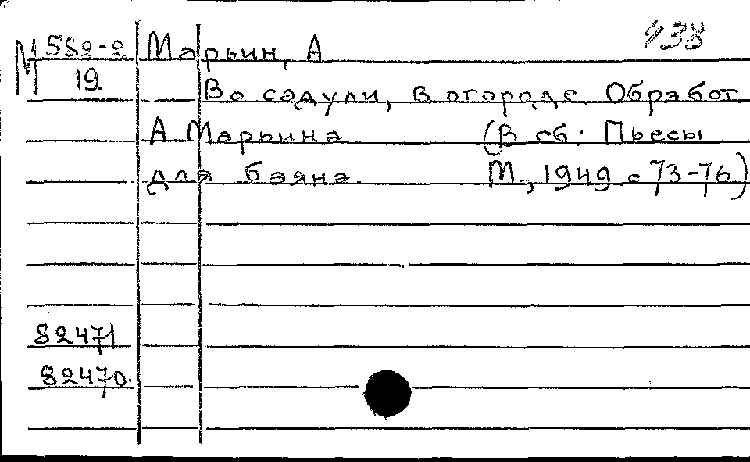 М 582-2 Марьин, А 438
19 Во садули, в огороде. Обработ.
А Марьина (В сб. Пьесы
для баяна. М., 1949 с 73-76)
82471
82470.